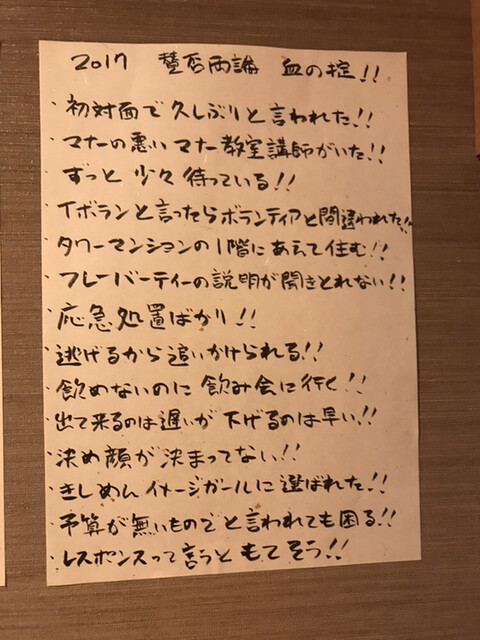 2017 賛否両論 血の掟!!
・初対面で久しぶりと言われた!!
・マナーの悪いマナー教室講師がいた!!
・ずっと少々待っている!!
・イボランと言ったらボランティアと間違われた!!
・タワーマンションの1階にあえて住む!!
・フレーバーティーの説明が聞きとれない!!
・応急処置ばかり!!
・逃げるから追いかけられる!!
・飲めないのに飲み会に行く!!
・出て来るのは遅いが下げるのは早い!!
・決め顔が決まってない!!
・きしめんイメージガールに選ばれた!!
・予算が無いものでと言われても困る!!
・レスポンスって言うともてそう!!